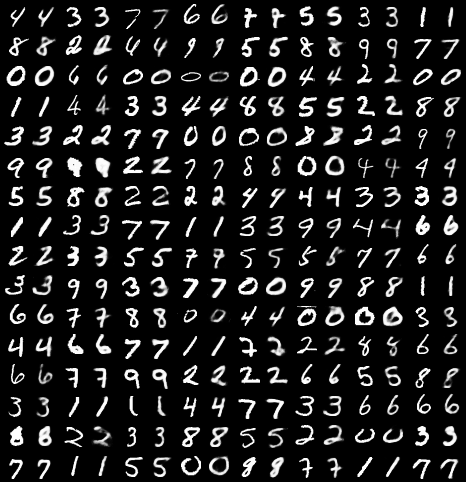 4 4 3 3 7 7 6 6 7 7 5 5 3 3 1 1
8 8 2 2 4 4 9 9 5 5 8 8 9 9 7 7
0 0 6 6 0 0 0 0 0 0 4 4 2 2 0 0
1 1 4 4 3 3 4 4 8 8 5 5 2 2 8 8
3 3 2 2 7 7 0 0 0 0 8 8 2 2 9 9
9 9 2 2 7 7 8 8 0 0 4 4 4 4
5 5 8 8 2 2 2 2 9 9 4 4 3 3 3 3
1 1 3 3 7 7 1 1 3 3 9 9 4 4 6 6
2 2 3 3 5 5 7 7 5 5 5 5 7 7 6 6
3 3 9 9 3 3 7 7 0 0 9 9 8 8 1 1
6 6 7 7 8 8 0 0 4 4 0 0 0 0 3 3
4 4 6 6 7 7 1 1 7 7 2 2 8 8 6 6
6 6 7 7 9 9 2 2 2 2 6 6 5 5 8 8
3 3 1 1 1 1 4 4 7 7 3 3 6 6 6 6
8 8 2 2 3 3 8 8 5 5 2 2 0 0 3 3
7 7 1 1 5 5 0 0 9 9 7 7 1 1 7 7